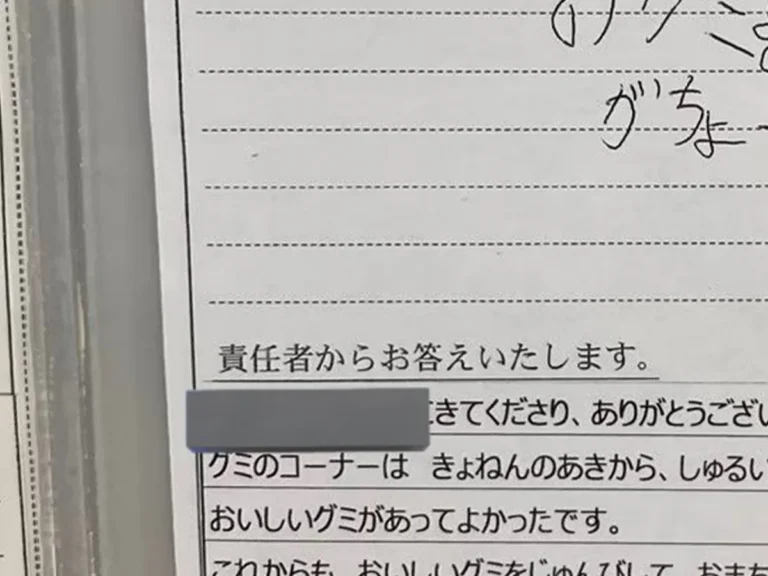 がちょー
責任者からお答えいたします。
にきてくださり、ありがとうござい
グミのコーナーは きょねんのあきから、しゅるい
おいしいグミがあってよかったです。
これからも、おいしいグミをじゅんびして、おまち